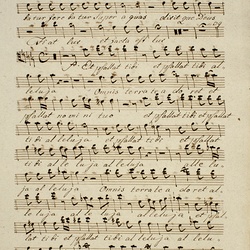 batur ferebatur super aquas dixitque Deus
Fiat lux et facta est lux
P. Et psallat tibi et psallat tibi al
leluja Omnis terra te a do ret et
psallat nomini tuo et psallat tibi et psallat
tibi alleluja et psallat tibi et psallat
tibi al le lu ja al le lu ja alle lu
ja al le lu ja Omnis terra te a do ret al
le lu ja alle lu ja et psal
lat tibi et psallat tibi al le lu ja al le lu ja